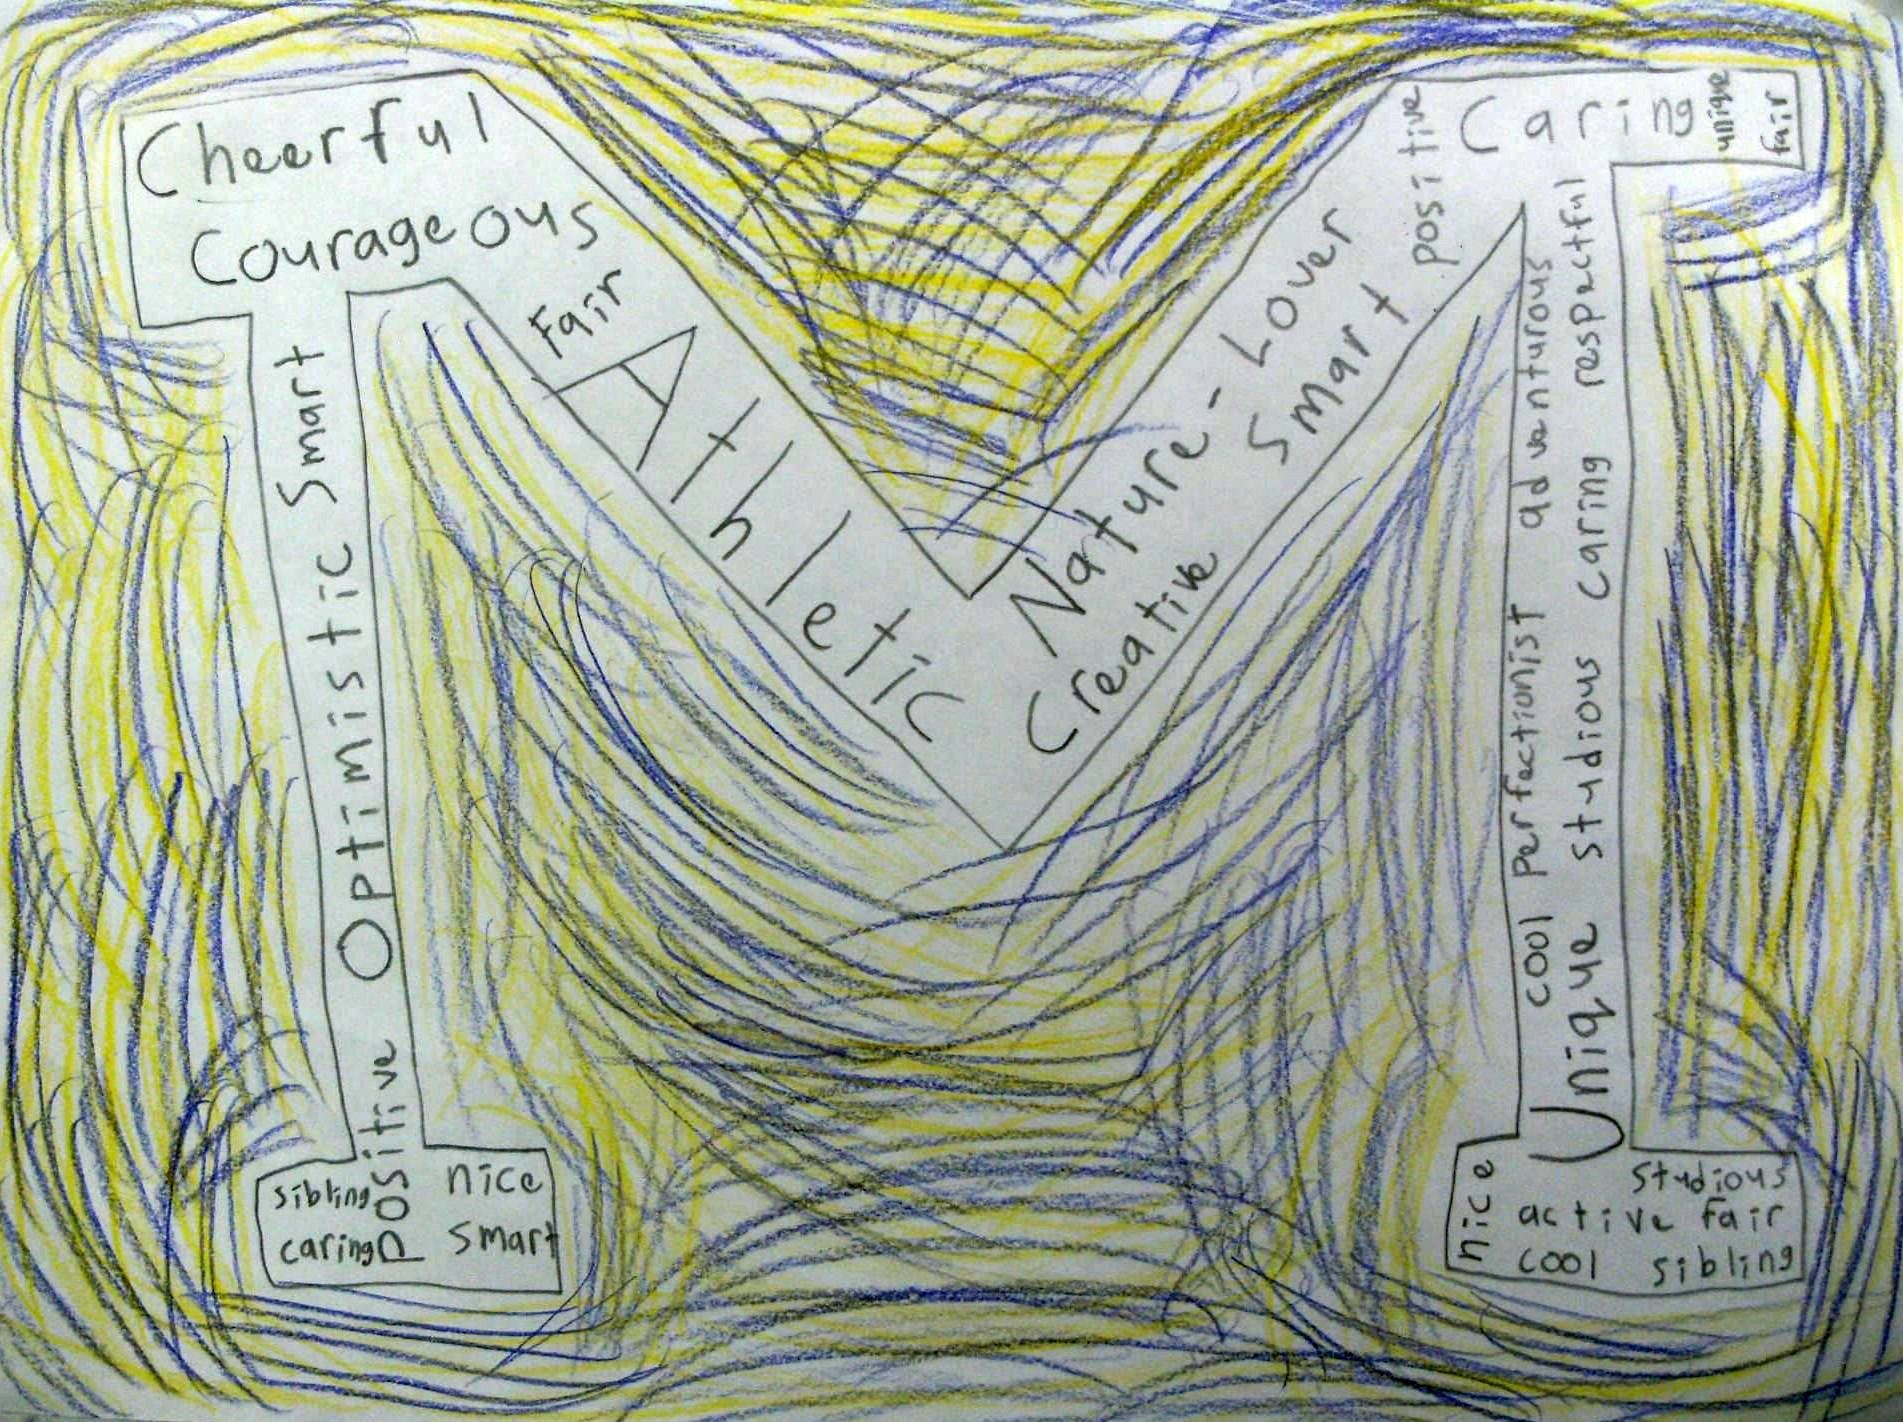 Cheerful
Courageous
Fair
Athletic
Nature-Lover
Creative
Smart
positive
Caring
unique
fair
Smart
Optimistic
positive
sibling
caring
nice
smart
adventurous
perfectionist
cool
respectful
caring
studious
Unique
nice
studious
active fair
cool sibling